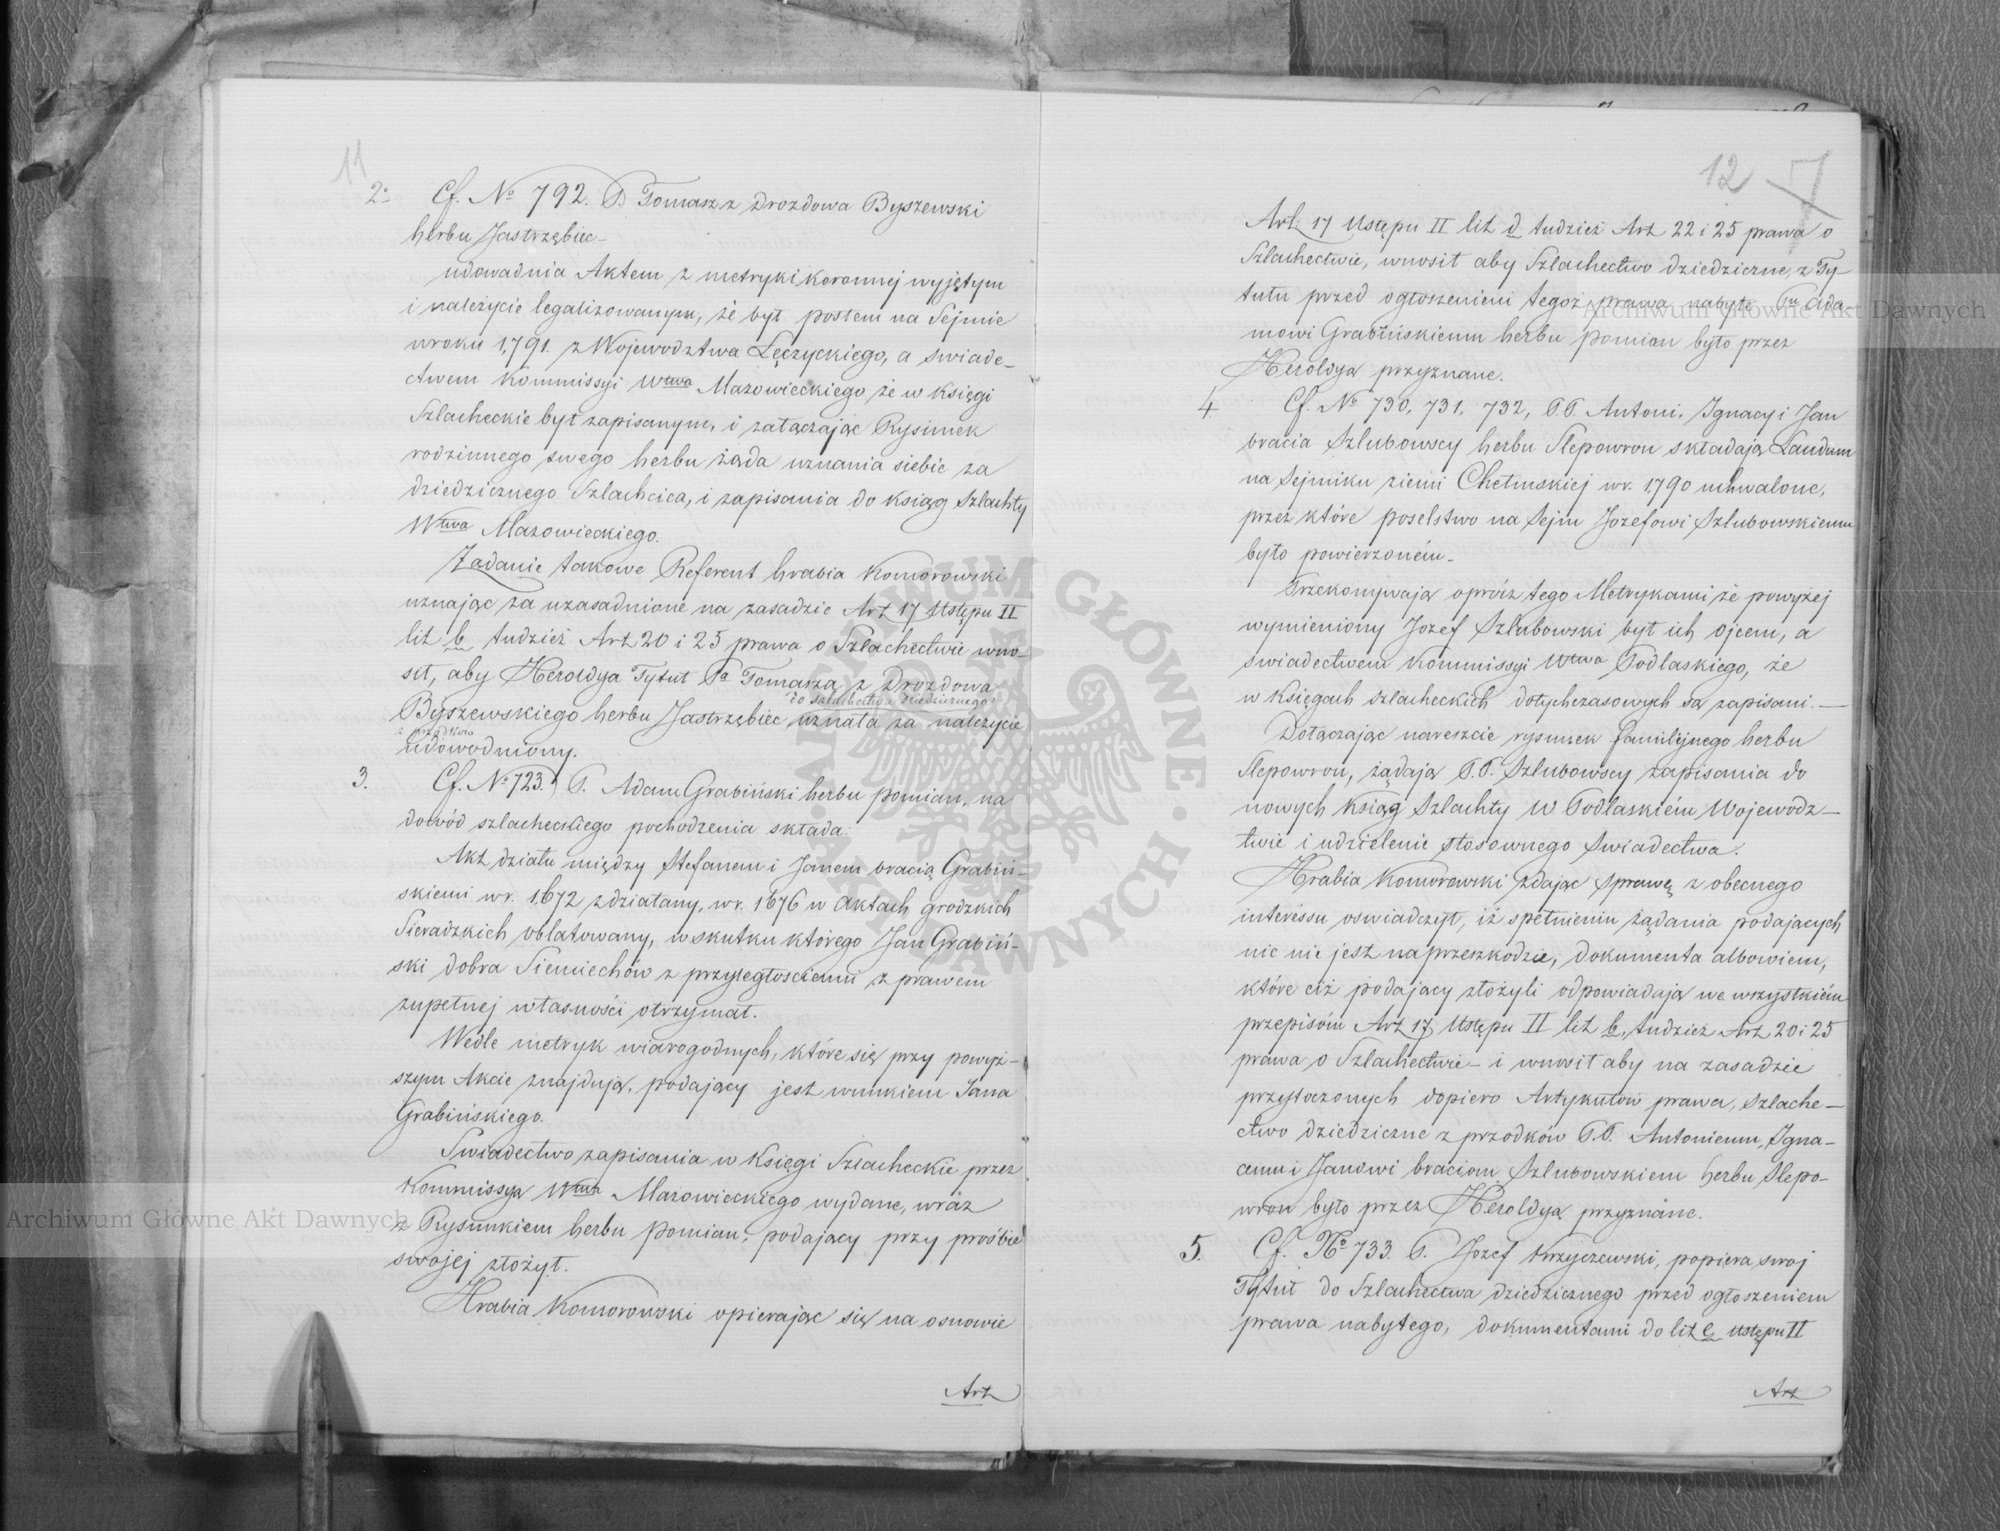 11
2. Cf. No 792. P. Tomasz z Drozdowa Byszewski
herbu Jastrzębiec
udowadnia Aktem z metryki koronnej wyjętym
i należycie legalizowanym, że był posłem na Sejmie
w roku 1791. z Województwa Łęczyckiego, a świade-
ctwem Kommissyi Wtwa Mazowieckiego że w księgi
Szlacheckie był zapisanym, i załączając Rysunek
rodzinnego swego herbu żąda uznania siebie za
dziedzicznego Szlachcica, i zapisania do ksiąg Szlachty
Wtwa Mazowieckiego.
Żądanie takowe Referent hrabia Komorowski
uznając za uzasadnione na zasadzie Art 17 Ustępu II
lit b tudzież Art 20 i 25 prawa o Szlachectwie wno-
sił, aby Heroldya Tytuł Pa Tomasza z Drozdowa
do szlachectwa dziedzicznego
Byszewskiego herbu Jastrzębiec uznała za należycie
z przodków
udowodniony.
3. Cf. No 723. P. Adam Grabiński herbu pomian, na
dowód szlacheckiego pochodzenia składa:
Akt działu między Stefanem i Janem bracią Grabiń-
skiemi w r. 1672 zdziałany, w r. 1676 w aktach grodzkich
Sieradzkich oblatowany, w skutku którego Jan Grabiń-
ski dobra Siemiechów z przyległościami z prawem
zupełnej własności otrzymał.
Wedle metryk wiarogodnych, które się przy powyż-
szym Akcie znajdują, podający jest wnukiem Jana
Grabińskiego.
Świadectwo zapisania w Księgi Szlacheckie przez
Kommissyą Wtwa Mazowieckiego wydane, wraz
z Rysunkiem herbu pomian, podający przy prośbie
swojej złożył.
Hrabia Komorowski opierając się na osnowie
Art
12 7
Art. 17 Ustępu II lit d tudzież Art 22 i 25 prawa o
Szlachectwie, wnosił aby Szlachectwo dziedziczne, z Ty-
tułu przed ogłoszeniem tegoż prawa nabyte Pu Ada-
mowi Grabińskiemu herbu pomian było przez
Heroldyą przyznane.
4 Cf. No 730, 731, 732, P.P. Antoni, Ignacy i Jan
bracia Szlubowscy herbu Slepowron składają Laudum
na Sejmiku ziemi Chełmskiej w r. 1790 uchwalone,
przez które poselstwo na Sejm Jozefowi Szlubowskiemu
było powierzoném.
Przekonywają oprócz tego Metrykami że powyżej
wymieniony Jozef Szlubowski był ich ojcem, a
swiadectwem Kommissyi Wtwa Podlaskiego, że
w księgach szlacheckich dotychczasowych są zapisani. —
Dołączając nareszcie rysunek familijnego herbu
Slepowron, żądają P.P. Szlubowscy zapisania do
nowych ksiąg Szlachty w Podlaskiém Wojewódz-
twie i udzielenie stosownego świadectwa.
Hrabia Komorowski zdając sprawę z obecnego
interessu oświadczył, iż spełnieniu żądania podających
nic nie jest na przeszkodzie, dokumenta albowiem,
które ciż podający złożyli odpowiadają we wszystkiém
przepisom Art 17 Ustępu II lit b, tudzież Art 20 i 25
prawa o Szlachectwie — i wnosił aby na zasadzie
przytoczonych dopiero Artykułów prawa, szlache-
ctwo dziedziczne z przodków P.P. Antoniemu, Igna-
cemu i Janowi braciom Szlubowskiem herbu Slepo-
wron było przez Heroldyą przyznane.
5. Cf. No 733. P. Jozef Krzyczewski, popiera swoj
Tytuł do Szlachectwa dziedzicznego przed ogłoszeniem
prawa nabytego, dokumentami do lit c Ustępu II
Art
Archiwum Główne Akt Dawnych
Archiwum Główne Akt Dawnych
ARCHIWUM GŁÓWNE · AKT DAWNYCH ·